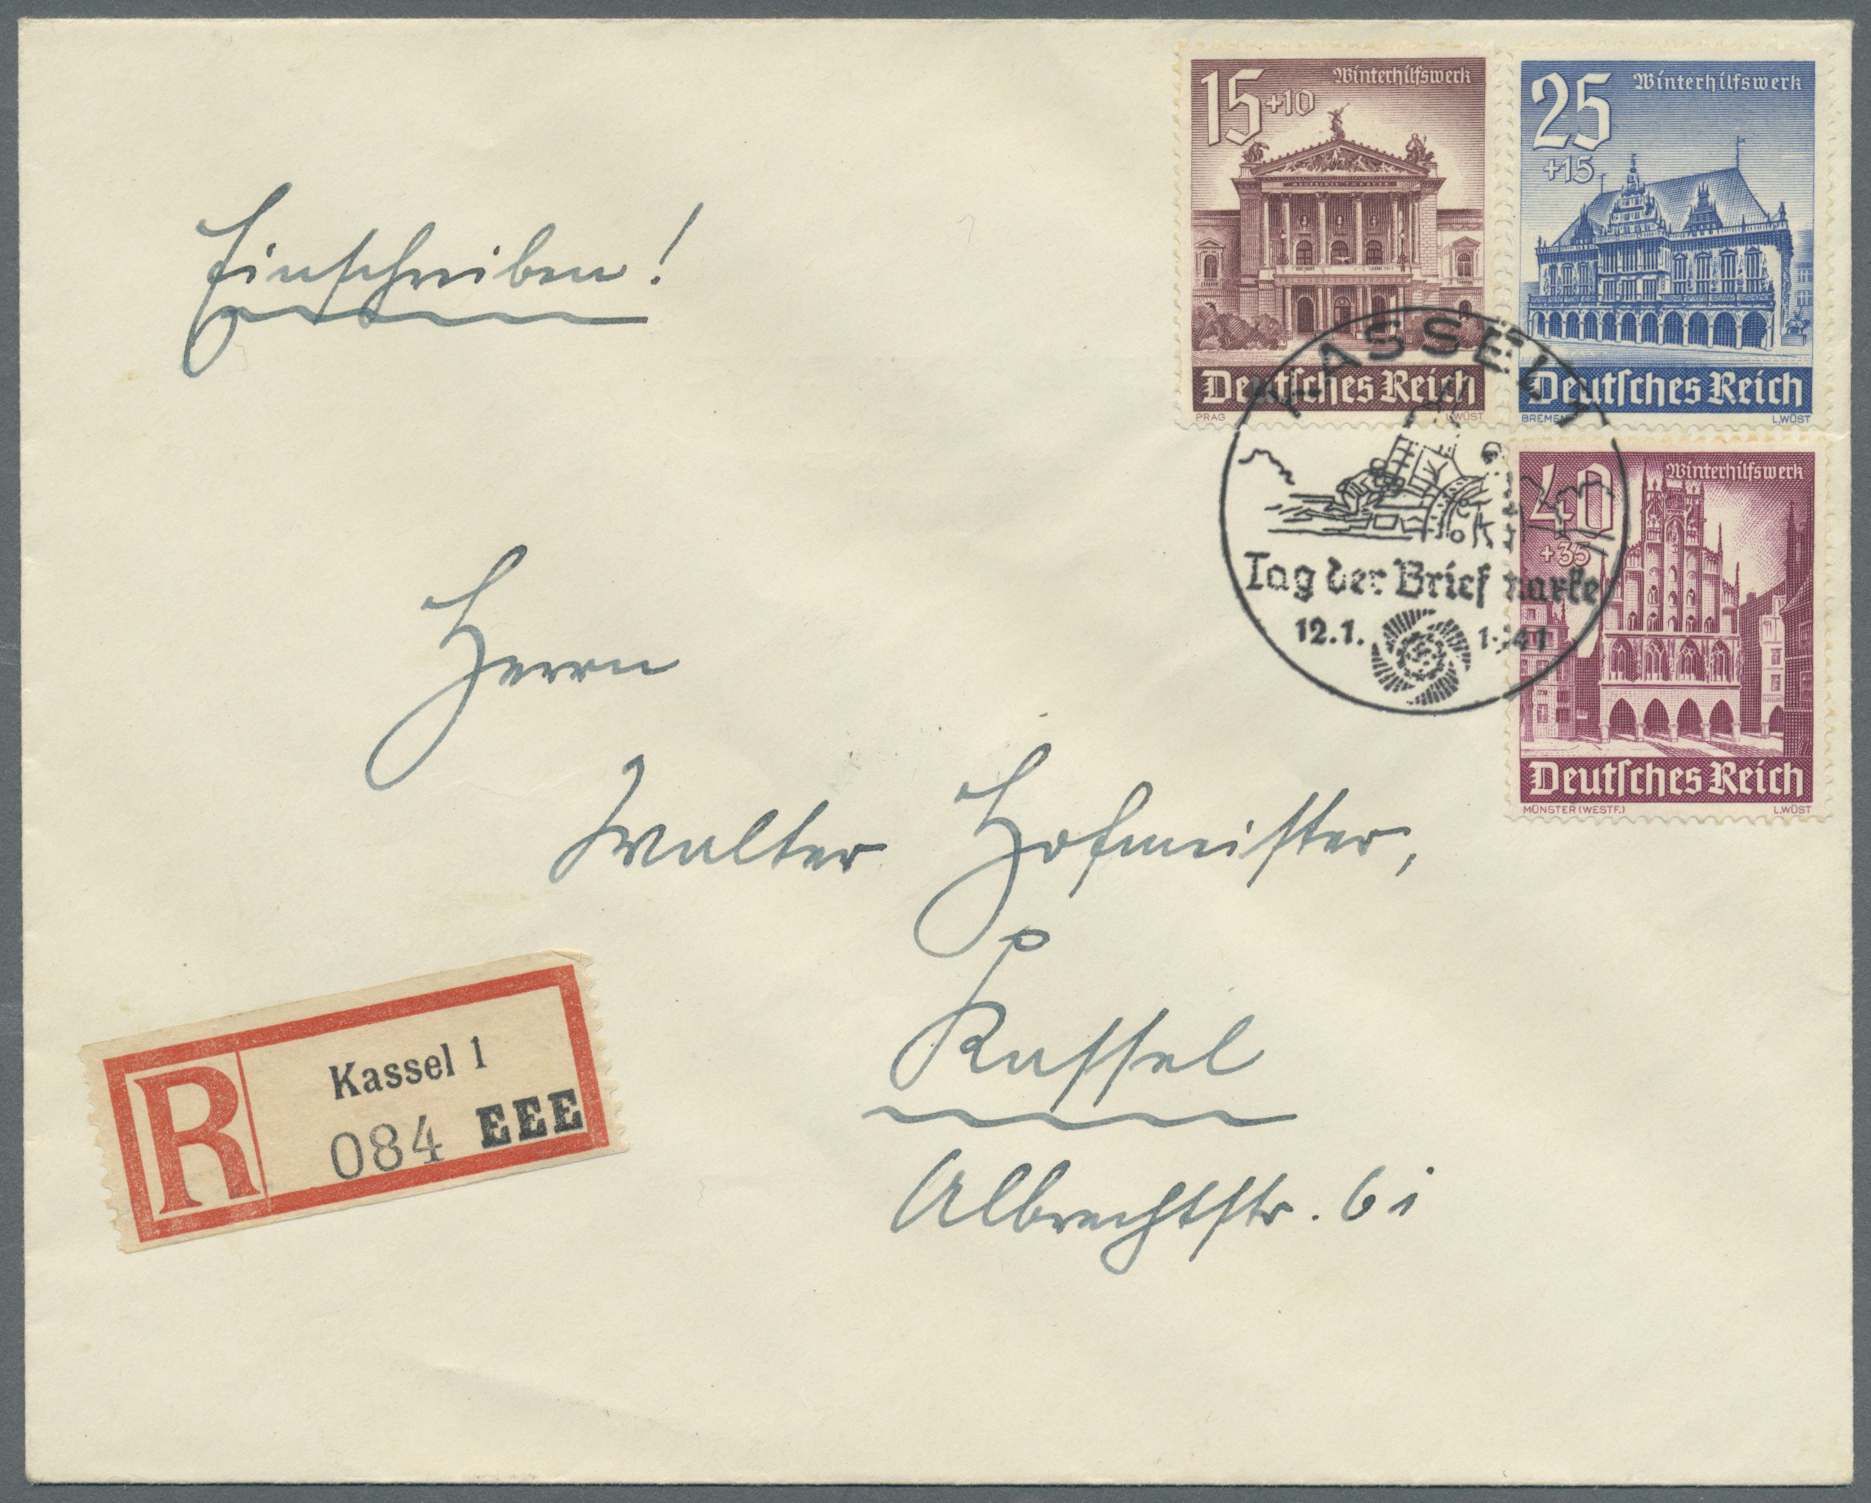 Einschreiben!
15 +10 Winterhilfswerk
Deutſches Reich
PRAG L.WÜST
25 +15 Winterhilfswerk
Deutſches Reich
BREMEN L.WÜST
40 +35 Winterhilfswerk
Deutſches Reich
MÜNSTER (WESTF.) L.WÜST
KASSEL 1
Tag der Briefmarke
12.1. 1941
Herrn
Walter Hofmeister,
Kassel
Albrechtstr. 6
R Kassel 1
084 EEE